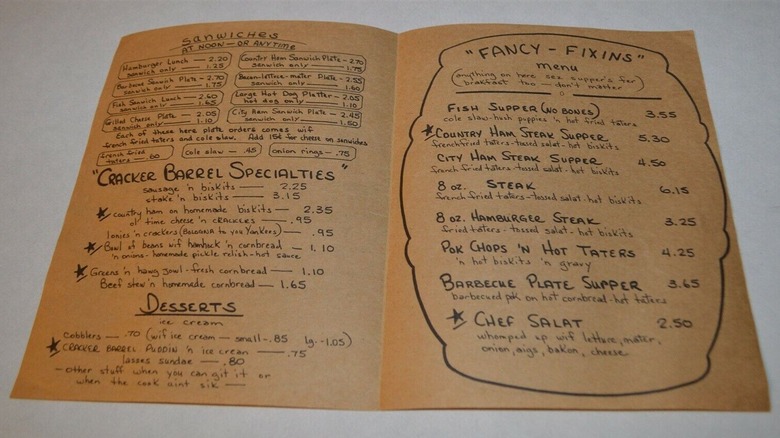 SANWICHES
AT NOON - OR ANYTIME
Hamburger Lunch — 2.20
sanwich only — 1.25
Country Ham Sanwich Plate - 2.70
sanwich only — 1.75
Barbecue Sanwich Plate - 2.70
sanwich only — 1.75
Bacon-lettuce-mater Plate - 2.55
sanwich only — 1.60
Fish Sanwich Lunch — 2.60
sanwich only — 1.65
Large Hot Dog Platter - 2.05
hot dog only — 1.10
Grilled Cheese Plate - 2.05
sanwich only — 1.10
City Ham Sanwich Plate - 2.45
sanwich only — 1.50
Each of these here plate orders comes wif
french fried taters and cole slaw. Add 15¢ for cheese on sanwiches
french fried taters - .60
cole slaw - .45
onion rings - .75
"CRACKER BARREL SPECIALTIES"
sausage 'n biskits — 2.25
stake 'n biskits — 3.15
country ham on homemade biskits — 2.35
ol' time cheese 'n crackers — .95
lonies 'n crackers (BOLOGNA to you Yankees) — .95
Bowl of beans wif hamhock 'n cornbread — 1.10
'n onions - homemade pickle relish - hot sauce
Greens 'n hawg jowl - fresh cornbread — 1.10
Beef stew 'n homemade cornbread — 1.65
DESSERTS
ice cream
Cobblers — .70 (wif ice cream — small - .85 lg. - 1.05)
CRACKER BARREL PUDDIN 'n ice crean — .75
lasses sundae — .80
- other stuff when you can git it or
when the cook aint sik —
"FANCY - FIXINS"
menu
(anything on here fer supper's for)
(breakfast too — don't matter)
FISH SUPPER (NO BONES) 3.55
cole slaw - hush puppies 'n hot fried taters
COUNTRY HAM STEAK SUPPER 5.30
french fried taters - tossed salat - hot biskits
CITY HAM STEAK SUPPER 4.50
french fried taters - tossed salat - hot biskits
8 oz. STEAK 6.15
french fried taters - tossed salat - hot biskits
8 oz. HAMBURGER STEAK 3.25
french fried taters - tossed salat - hot biskits
POK CHOPS 'N HOT TATERS 4.25
'n hot biskits 'n gravy
BARBECUE PLATE SUPPER 3.65
barbecued pok on hot cornbread - hot taters
CHEF SALAT 2.50
whomped up wif lettuce, mater,
onion, aigs, bakon, cheese